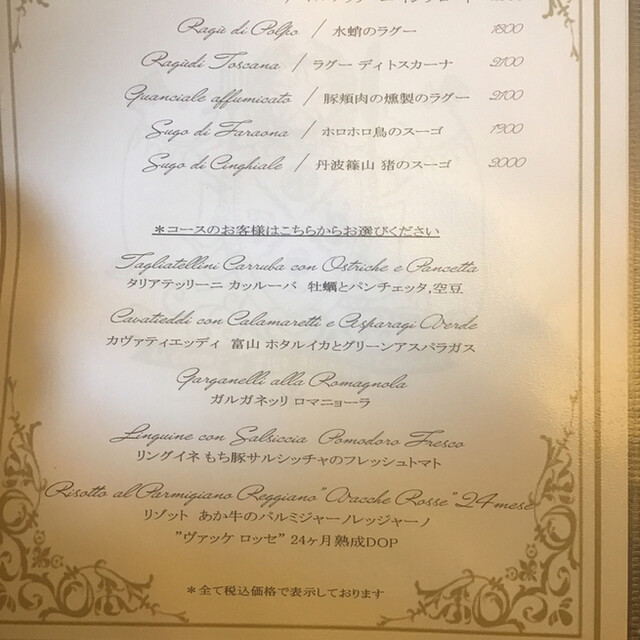 Ragù di Polpo / 水蛸のラグー 1800
Ragùdi Toscana / ラグー ディトスカーナ 2100
Guanciale affumicato / 豚頬肉の燻製のラグー 2100
Sugo di Faraona / ホロホロ鳥のスーゴ 1900
Sugo di Cinghiale / 丹波篠山 猪のスーゴ 2000
*コースのお客様はこちらからお選びください
Tagliatellini Carruba con Ostriche e Pancetta
タリアテッリーニ カッルーバ 牡蠣とパンチェッタ,空豆
Cavatieddi con Calamaretti e Asparagi Verde
カヴァティエッディ 富山 ホタルイカとグリーンアスパラガス
Garganelli alla Romagnola
ガルガネッリ ロマニョーラ
Linguine con Salsiccia Pomodoro Fresco
リングイネ もち豚サルシッチャのフレッシュトマト
Risotto al Parmigiano Reggiano "Vacche Rosse" 24mese
リゾット あか牛のパルミジャーノレッジャーノ
"ヴァッケ ロッセ" 24ヶ月熟成DOP
*全て税込価格で表示しております